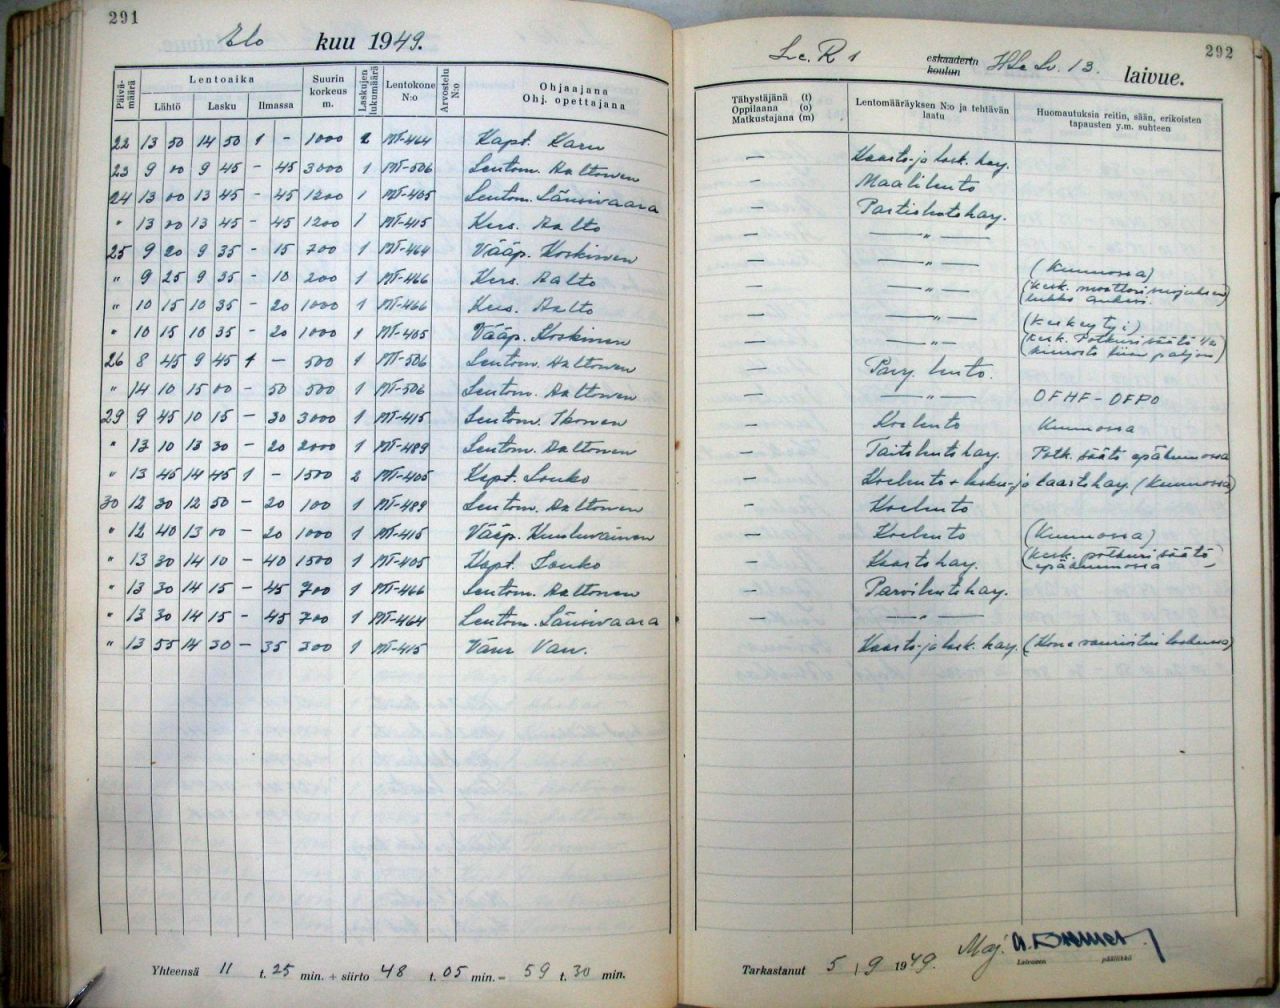 291
Elo kuu 1949.
Päivä-määrä
Lentoaika
Lähtö Lasku Ilmassa
Suurin korkeus m.
Laskujen lukumäärä
Lentokone N:o
Arvostelu N:o
Ohjaajana
Ohj. opettajana
22 13 50 14 50 1 - 1000 2 MT-464 Kapt. Karu
23 9 00 9 45 - 45 3000 1 MT-506 Lentom. Aaltonen
24 13 00 13 45 - 45 1200 1 MT-405 Lentom. Länsivaara
" 13 00 13 45 - 45 1200 1 MT-415 Kers. Aalto
25 9 20 9 35 - 15 700 1 MT-464 Vääp. Koskinen
" 9 25 9 35 - 10 200 1 MT-466 Kers. Aalto
" 10 15 10 35 - 20 1000 1 MT-466 Kers. Aalto
" 10 15 10 35 - 20 1000 1 MT-405 Vääp. Koskinen
26 8 45 9 45 1 - 500 1 MT-506 Lentom. Aaltonen
" 14 10 15 00 - 50 500 1 MT-506 Lentom. Aaltonen
29 9 45 10 15 - 30 3000 1 MT-415 Lentom. Ikonen
" 13 10 13 30 - 20 2000 1 MT-489 Lentom. Aaltonen
" 13 45 14 45 1 - 1500 2 MT-405 Kapt. Louko
30 12 30 12 50 - 20 100 1 MT-489 Lentom. Aaltonen
" 12 40 13 00 - 20 1000 1 MT-415 Vääp. Kuuluvainen
" 13 30 14 10 - 40 1500 1 MT-405 Kapt. Louko
" 13 30 14 15 - 45 700 1 MT-466 Lentom. Aaltonen
" 13 30 14 15 - 45 700 1 MT-464 Lentom. Länsivaara
" 13 55 14 30 - 35 300 1 MT-415 Vänr
Yhteensä 11 t. 25 min. + siirto 48 t. 05 min. = 59 t. 30 min.
292
Le.R 1 eskaaderin koulun HLe Lv. 13. laivue.
Tähystäjänä (t)
Oppilaana (o)
Matkustajana (m)
Lentomääräyksen N:o ja tehtävän laatu
Huomautuksia reitin, sään, erikoisten tapausten y.m. suhteen
— Kaarto- ja lask. harj.
— Maalilento
— Partiolentoharj.
— — " —
— — " — (Kunnossa)
— — " — (Kesk. moottorisuojuksen luukku aukesi
— — " — (Keskeytyi)
— — " — (Kesk. Potkurisäätö
— Parv. lento.
— — " — OFHF - OFPO
— Koelento Kunnossa
— Taitolentoharj. Potk. säätö epäkunnossa
— Koelento + lasku- ja kaartohar. (Kunnossa)
— Koelento
— Koelento (Kunnossa)
— Kaartoharj. (Kesk. potkuri säätö epäkunnossa
— Parvilentoharj.
— " —
Kaarto- ja lask. harj. (Kone vaurioitui laskussa)
Tarkastanut 5 / 9 1949. Maj.
Laivueen päällikkö